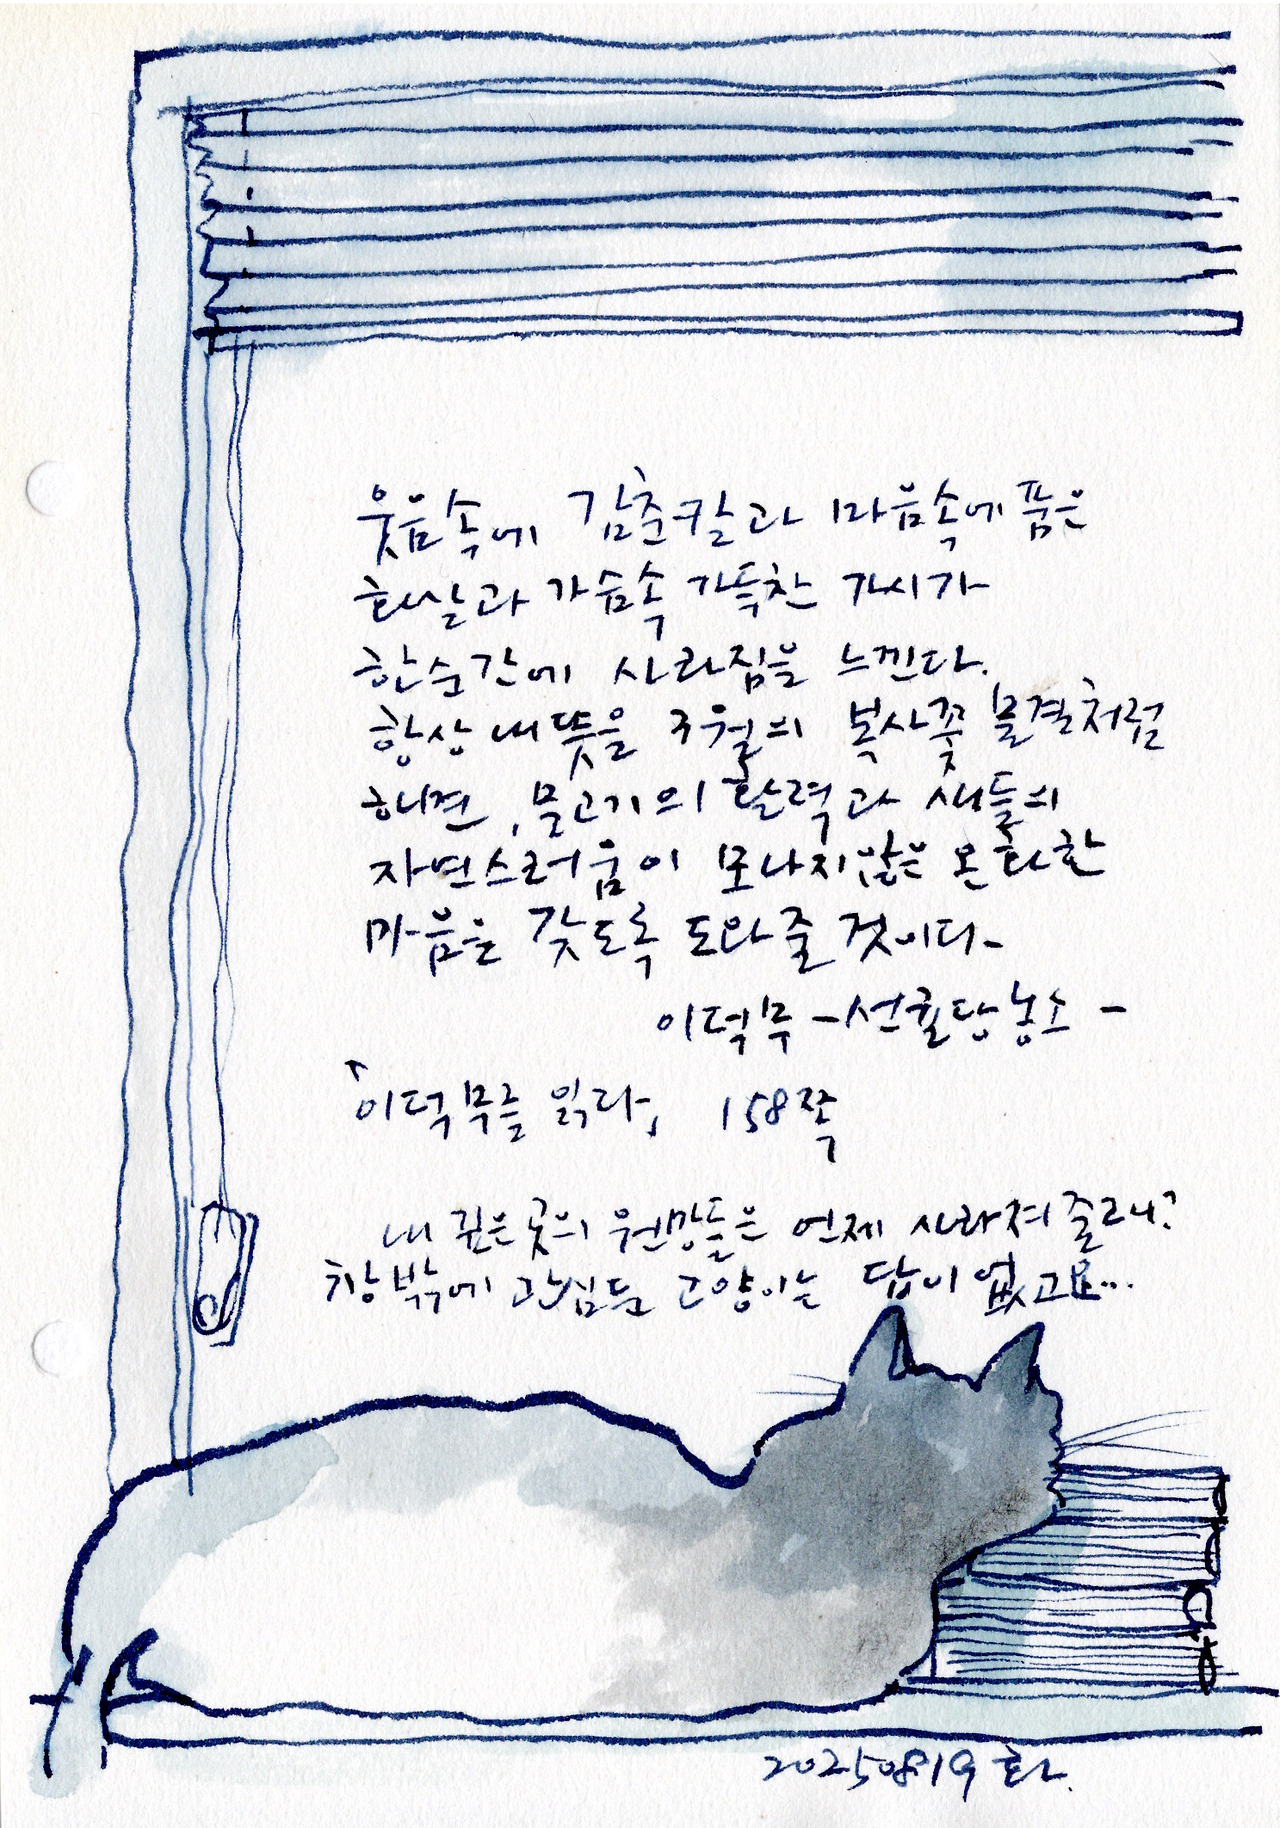 웃음속에 감춘칼과 마음속에 품은
화살과 가슴속 가득찬 가시가
한순간에 사라짐을 느낀다.
항상 내 뜻을 3월의 복사꽃 물결처럼
하면, 물고기의 활력과 새들의
자연스러움이 모나지않은 온화한
마음을 갖도록 도와줄 것이다.
이덕무 -선귤당농소-
이덕무를 읽다, 158쪽
내 깊은 곳의 원망들은 언제 사라져 줄려나?
창밖에 관심둔 고양이는 답이 없고요...
20250819 화.